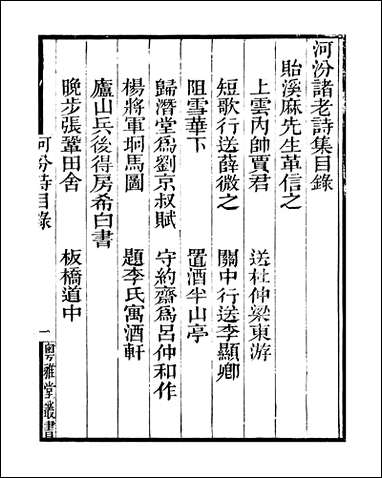 河汾諸老詩集目錄
貽溪麻先生革信之
上雲內帥賈君　送杜仲梁東游
短歌行送薛微之　關中行送李顯卿
阻雪華下　置酒半山亭
歸潛堂爲劉京叔賦　守約齋爲呂仲和作
楊將軍坰馬圖　題李氏寓酒軒
廬山兵後得房希白書
晚步張鞏田舍　板橋道中
河汾詩目錄　一　粵雅堂叢書